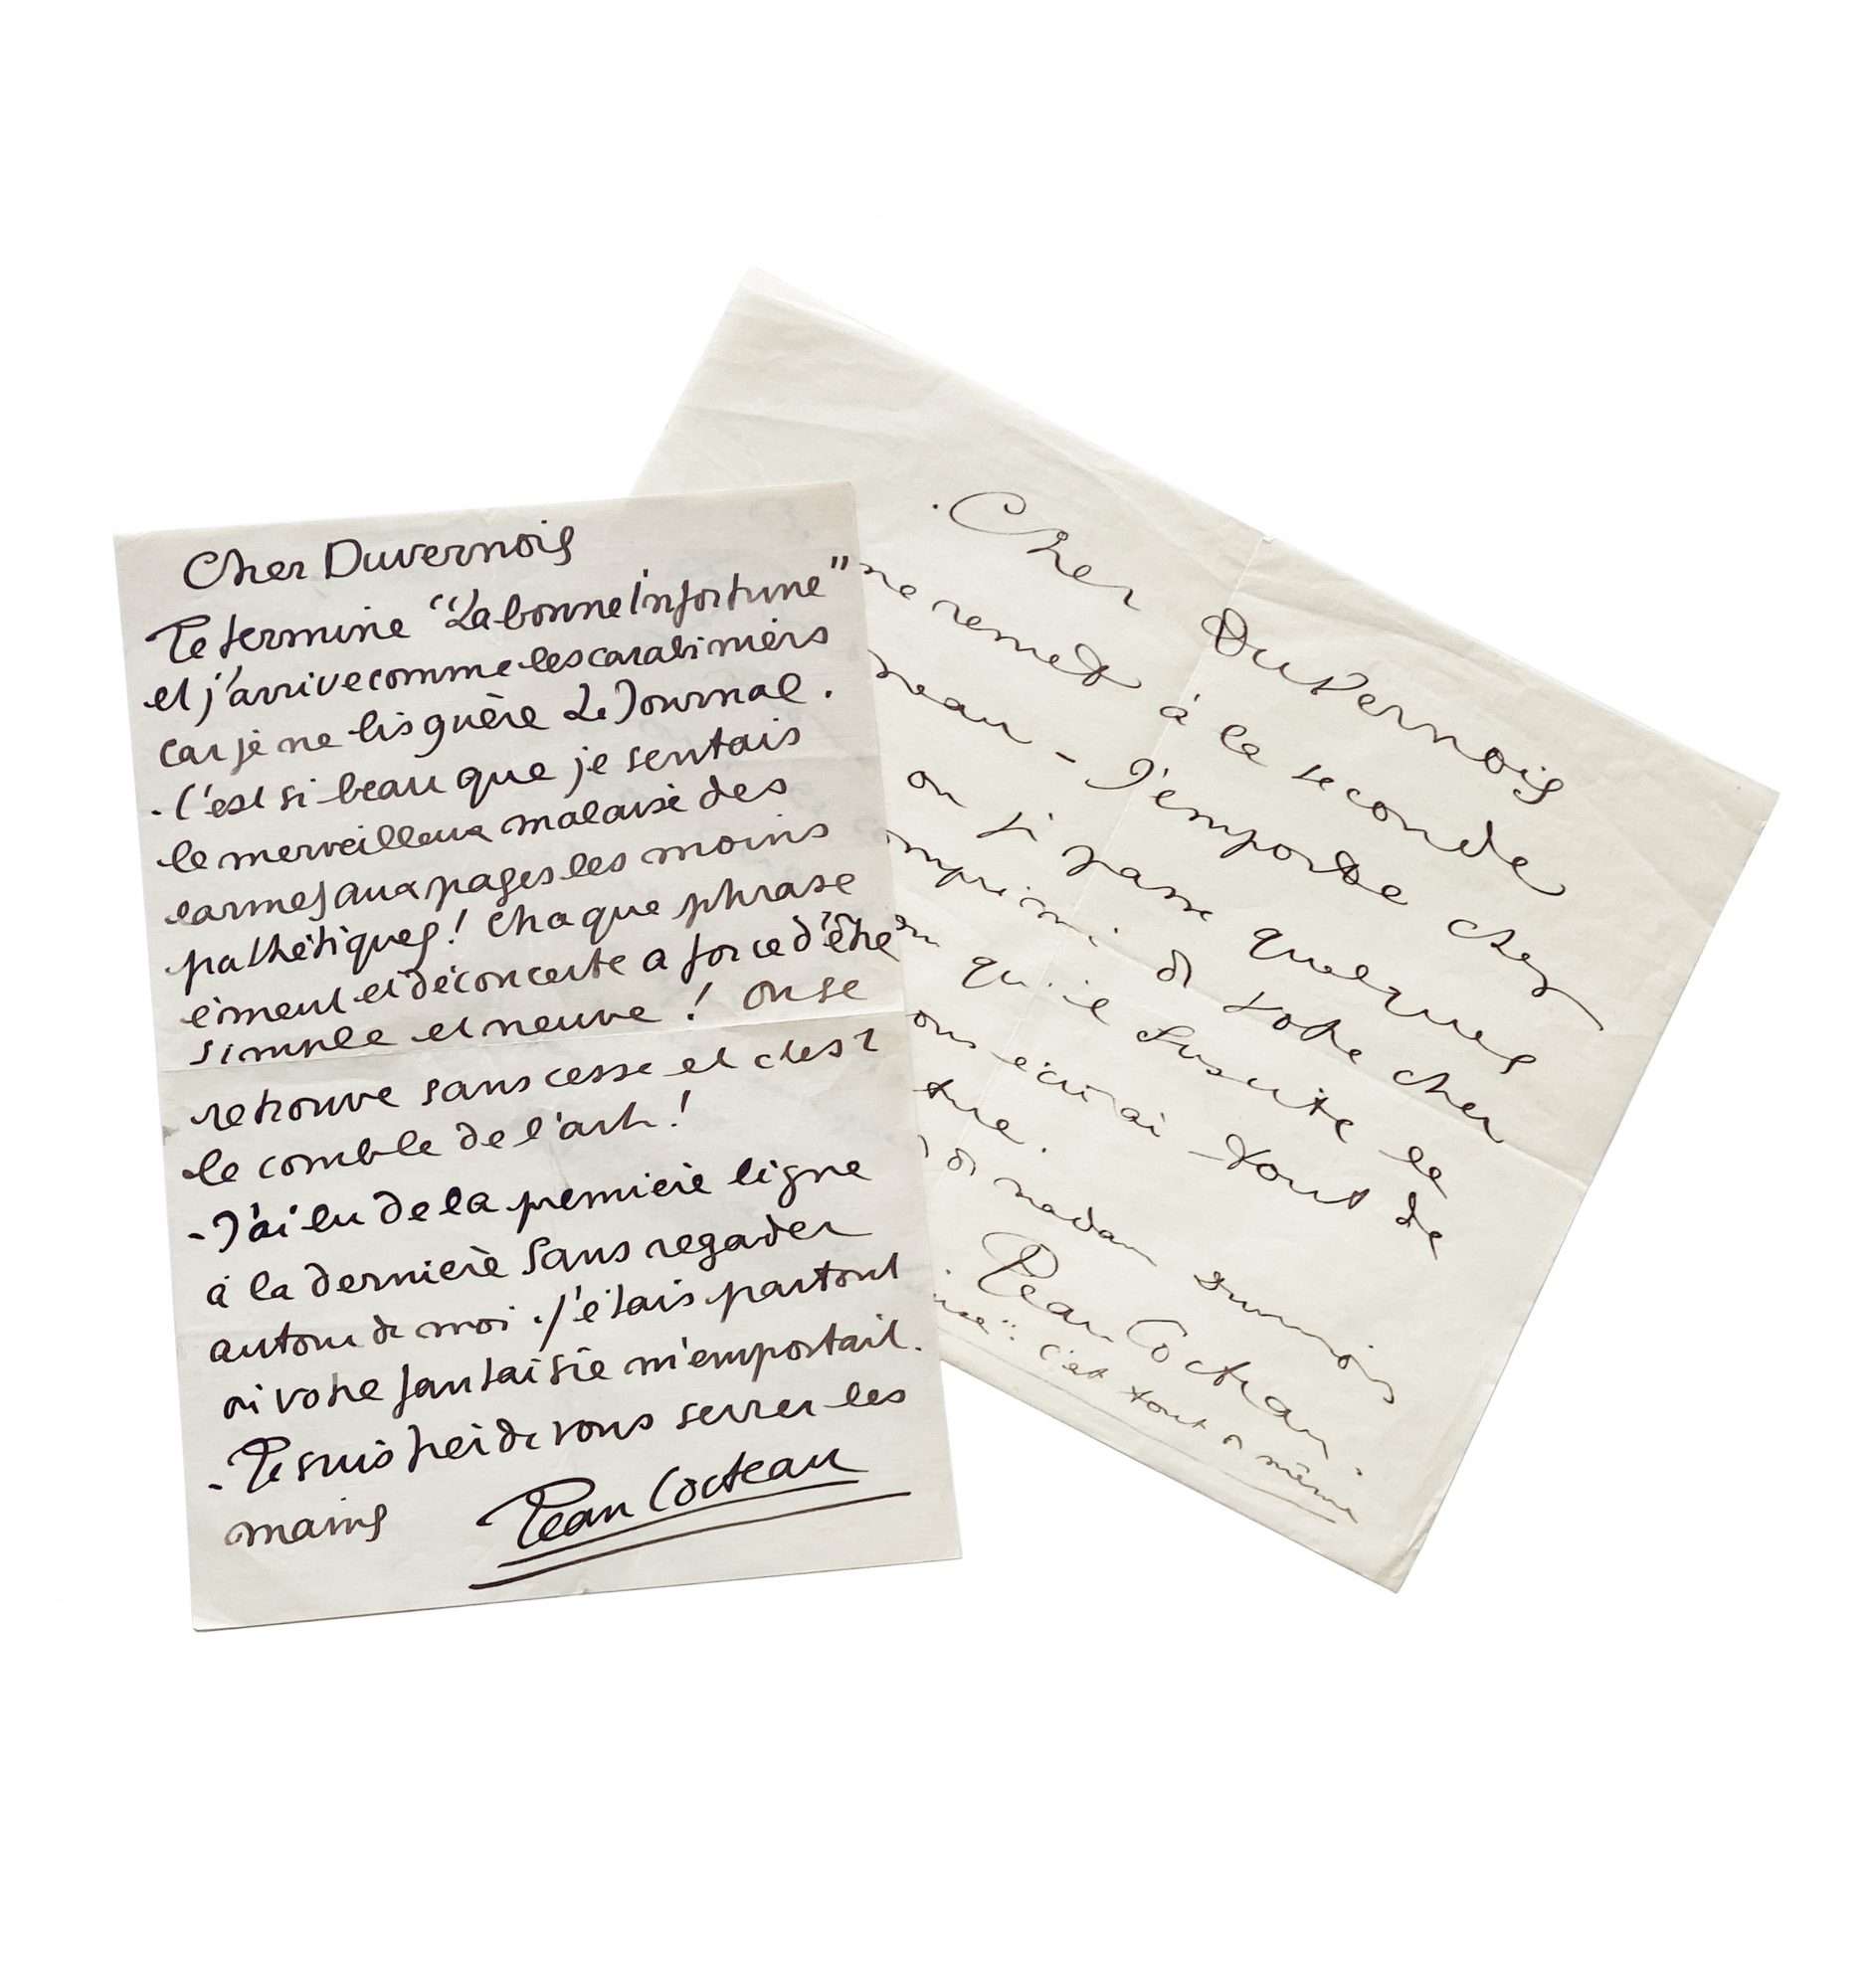 Cher Duvernois
Je termine "La bonne Infortune"
et j'arrive comme les carabiniers
car je ne lis guère Le Journal.
- C'est si beau que je sentais
le merveilleux malaise des
larmes aux pages les moins
pathétiques! Chaque phrase
émeut et déconcerte a force d'être
simple et neuve! On se
retrouve sans cesse et c'est
le comble de l'art!
- J'ai lu de la première ligne
à la dernière sans regarder
autour de moi. J'étais partout
où votre fantaisie m'emportait.
- Je suis fier de vous serrer les
mains
Jean Cocteau
Cher Duvernois
me remet à la seconde
J'emporte chez
on si passe quelques
de votre cher
qu'il suscite le
écrirai tout de
Jean Cocteau
C'est tout de même